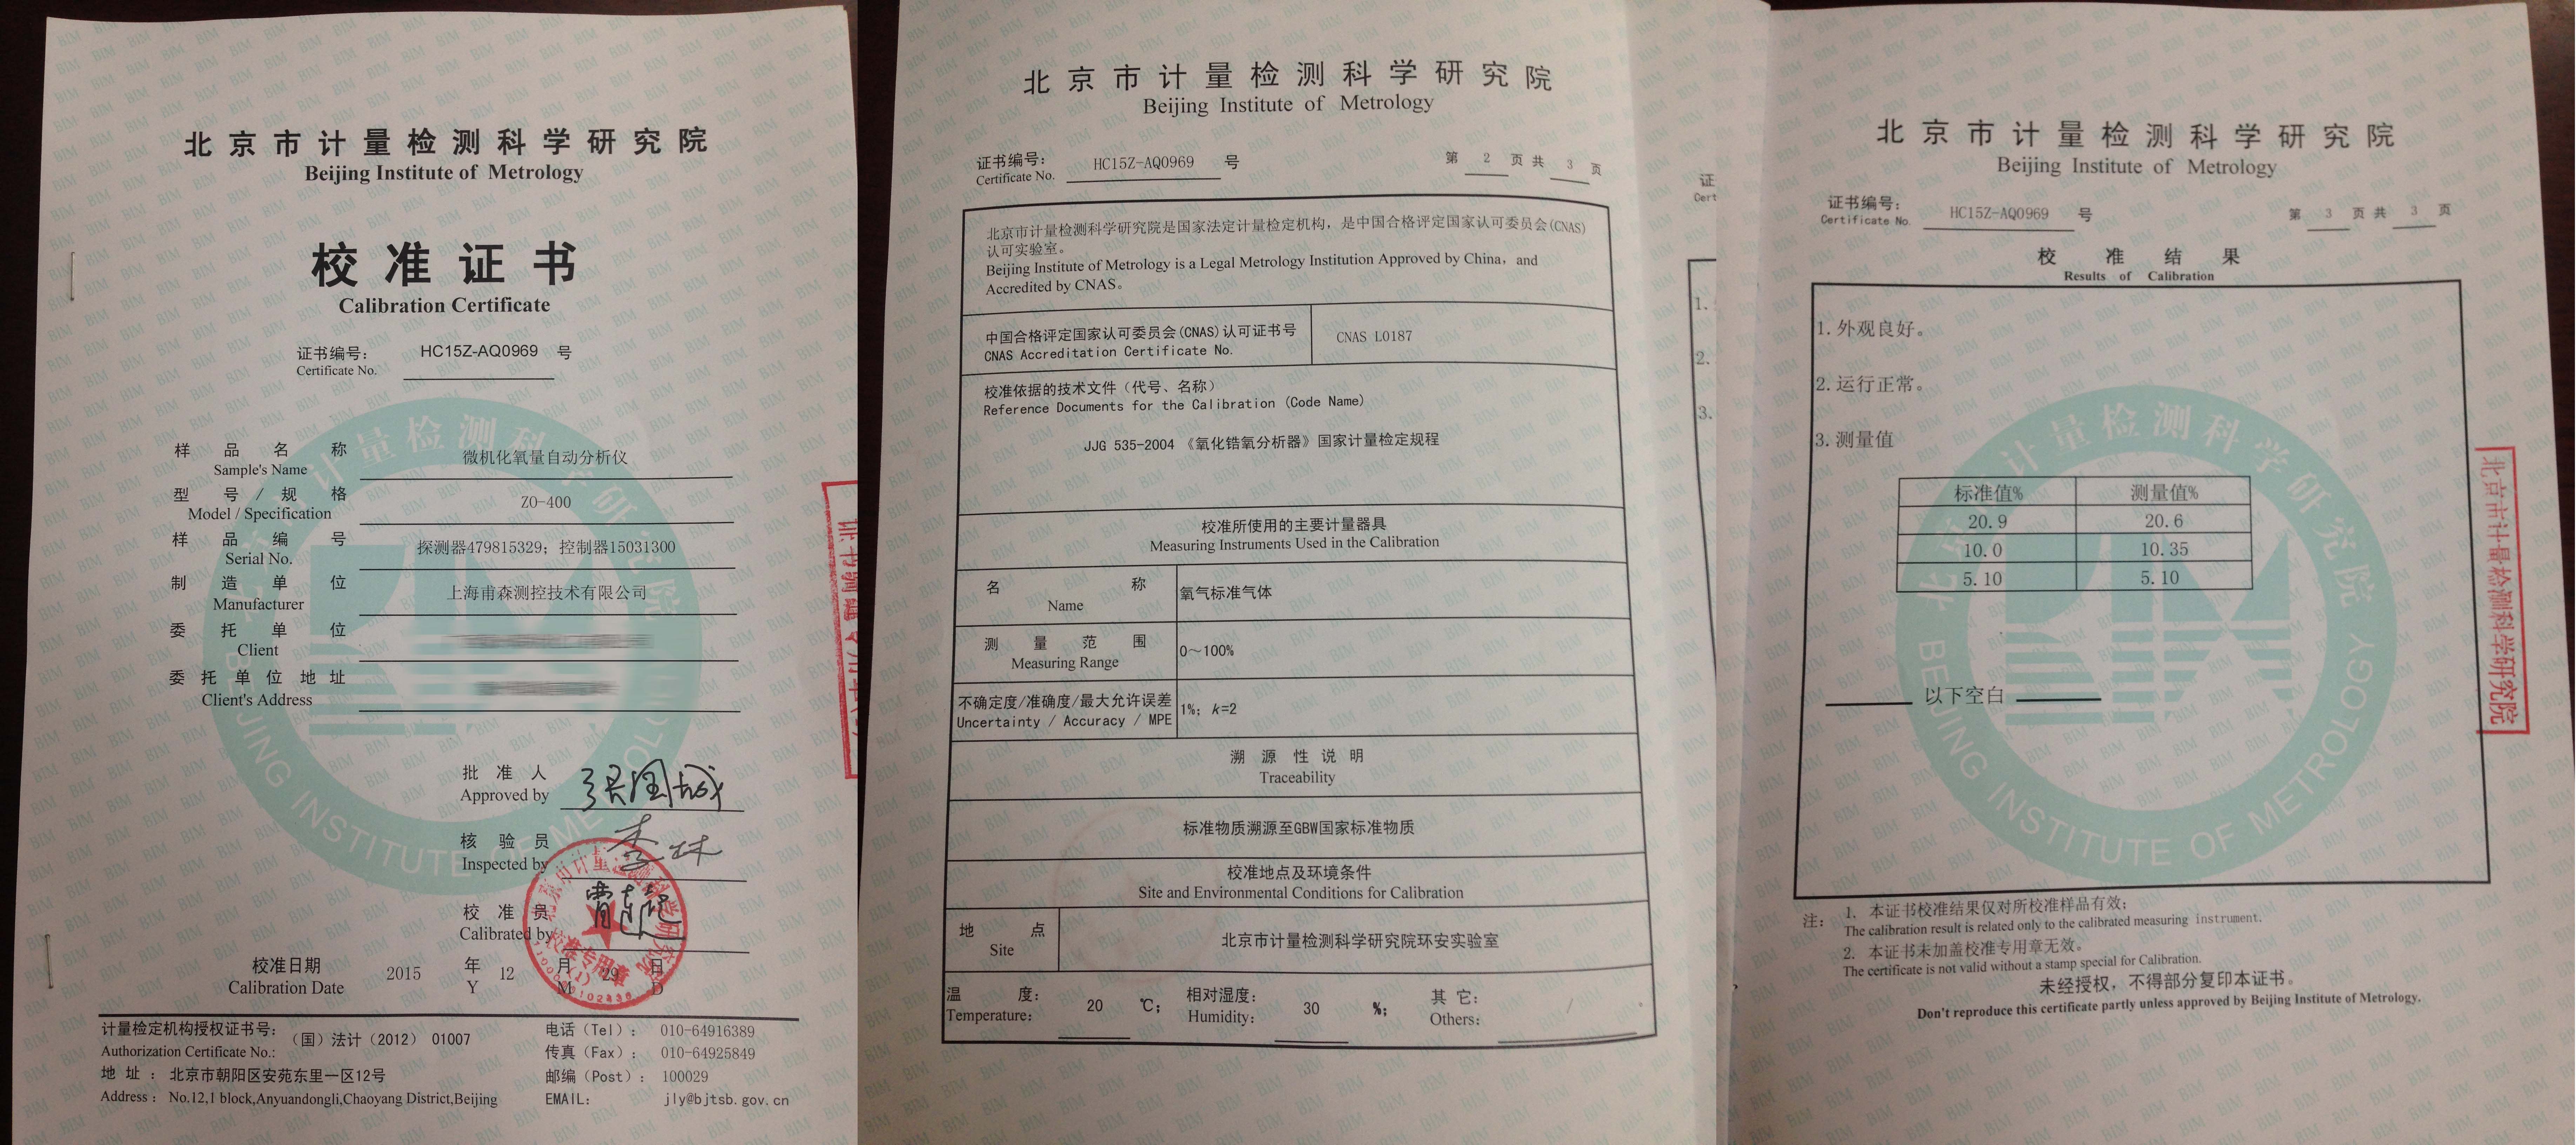 北京市计量检测科学研究院
Beijing Institute of Metrology
校准证书
Calibration Certificate
证书编号: HC15Z-AQ0969 号
Certificate No.
样品名称 微机化氧量自动分析仪
Sample's Name
型号/规格 ZO-400
Model / Specification
样品编号 探测器479815329; 控制器15031300
Serial No.
制造单位 上海甫森测控技术有限公司
Manufacturer
委托单位
Client
委托单位地址
Client's Address
批准人
Approved by
核验员
Inspected by
校准员
Calibrated by
校准日期 2015 年 12 月 29 日
Calibration Date Y M D
计量检定机构授权证书号: (国)法计(2012) 01007
Authorization Certificate No.:
地址: 北京市朝阳区安苑东里一区12号
Address: No.12,1 block,Anyuandongli,Chaoyang District,Beijing
电话(Tel): 010-64916389
传真(Fax): 010-64925849
邮编(Post): 100029
EMAIL: jly@bjtsb.gov.cn
北京市计量检测科学研究院
Beijing Institute of Metrology
证书编号: HC15Z-AQ0969 号 第 2 页 共 3 页
Certificate No.
北京市计量检测科学研究院是国家法定计量检定机构，是中国合格评定国家认可委员会(CNAS)
认可实验室。
Beijing Institute of Metrology is a Legal Metrology Institution Approved by China, and
Accredited by CNAS。
中国合格评定国家认可委员会(CNAS)认可证书号 CNAS L0187
CNAS Accreditation Certificate No.
校准依据的技术文件（代号、名称）
Reference Documents for the Calibration (Code Name)
JJG 535-2004《氧化锆氧分析器》国家计量检定规程
校准所使用的主要计量器具
Measuring Instruments Used in the Calibration
名称 氧气标准气体
Name
测量范围 0～100%
Measuring Range
不确定度/准确度/最大允许误差 1%; k=2
Uncertainty / Accuracy / MPE
溯源性说明
Traceability
标准物质溯源至GBW国家标准物质
校准地点及环境条件
Site and Environmental Conditions for Calibration
地点 北京市计量检测科学研究院环安实验室
Site
温度: 20 ℃; 相对湿度: 30 %; 其它: /
Temperature: Humidity: Others:
北京市计量检测科学研究院
Beijing Institute of Metrology
证书编号: HC15Z-AQ0969 号 第 3 页 共 3 页
Certificate No.
校准结果
Results of Calibration
1.外观良好。
2.运行正常。
3.测量值
标准值% 测量值%
20.9 20.6
10.0 10.35
5.10 5.10
以下空白
注: 1. 本证书校准结果仅对所校准样品有效;
The calibration result is related only to the calibrated measuring instrument.
2. 本证书未加盖校准专用章无效。
The certificate is not valid without a stamp special for Calibration.
未经授权，不得部分复印本证书。
Don't reproduce this certificate partly unless approved by Beijing Institute of Metrology.
北京市计量检测科学研究院